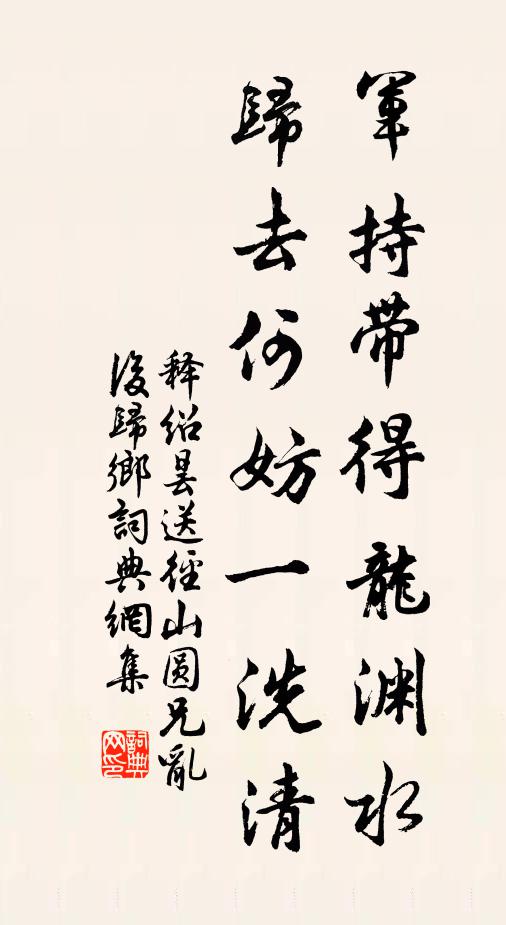 軍持帶得龍渊水
歸去何妨一洗清
释绍昙送徑山圆兄亂
後歸鄉詞典網集
詞典
网印